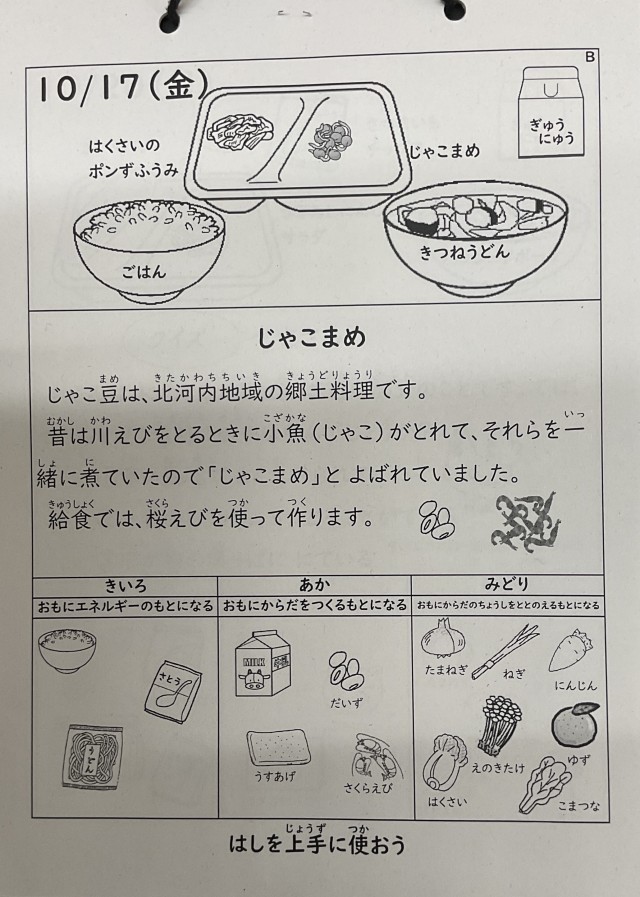 B
10/17(金)
ぎゅう
にゅう
はくさいの
ポンずふうみ
じゃこまめ
ごはん
きつねうどん
じゃこまめ
じゃこ豆は、北河内地域の郷土料理です。
昔は川えびをとるときに小魚(じゃこ)がとれて、それらを一
緒に煮ていたので「じゃこまめ」と よばれていました。
給食では、桜えびを使って作ります。
きいろ
おもにエネルギーのもとになる
さとう
うどん
あか
おもにからだをつくるもとになる
MILK
だいず
うすあげ
さくらえび
みどり
おもにからだのちょうしをととのえるもとになる
たまねぎ
ねぎ
にんじん
えのきたけ
ゆず
はくさい
こまつな
はしを上手に使おう